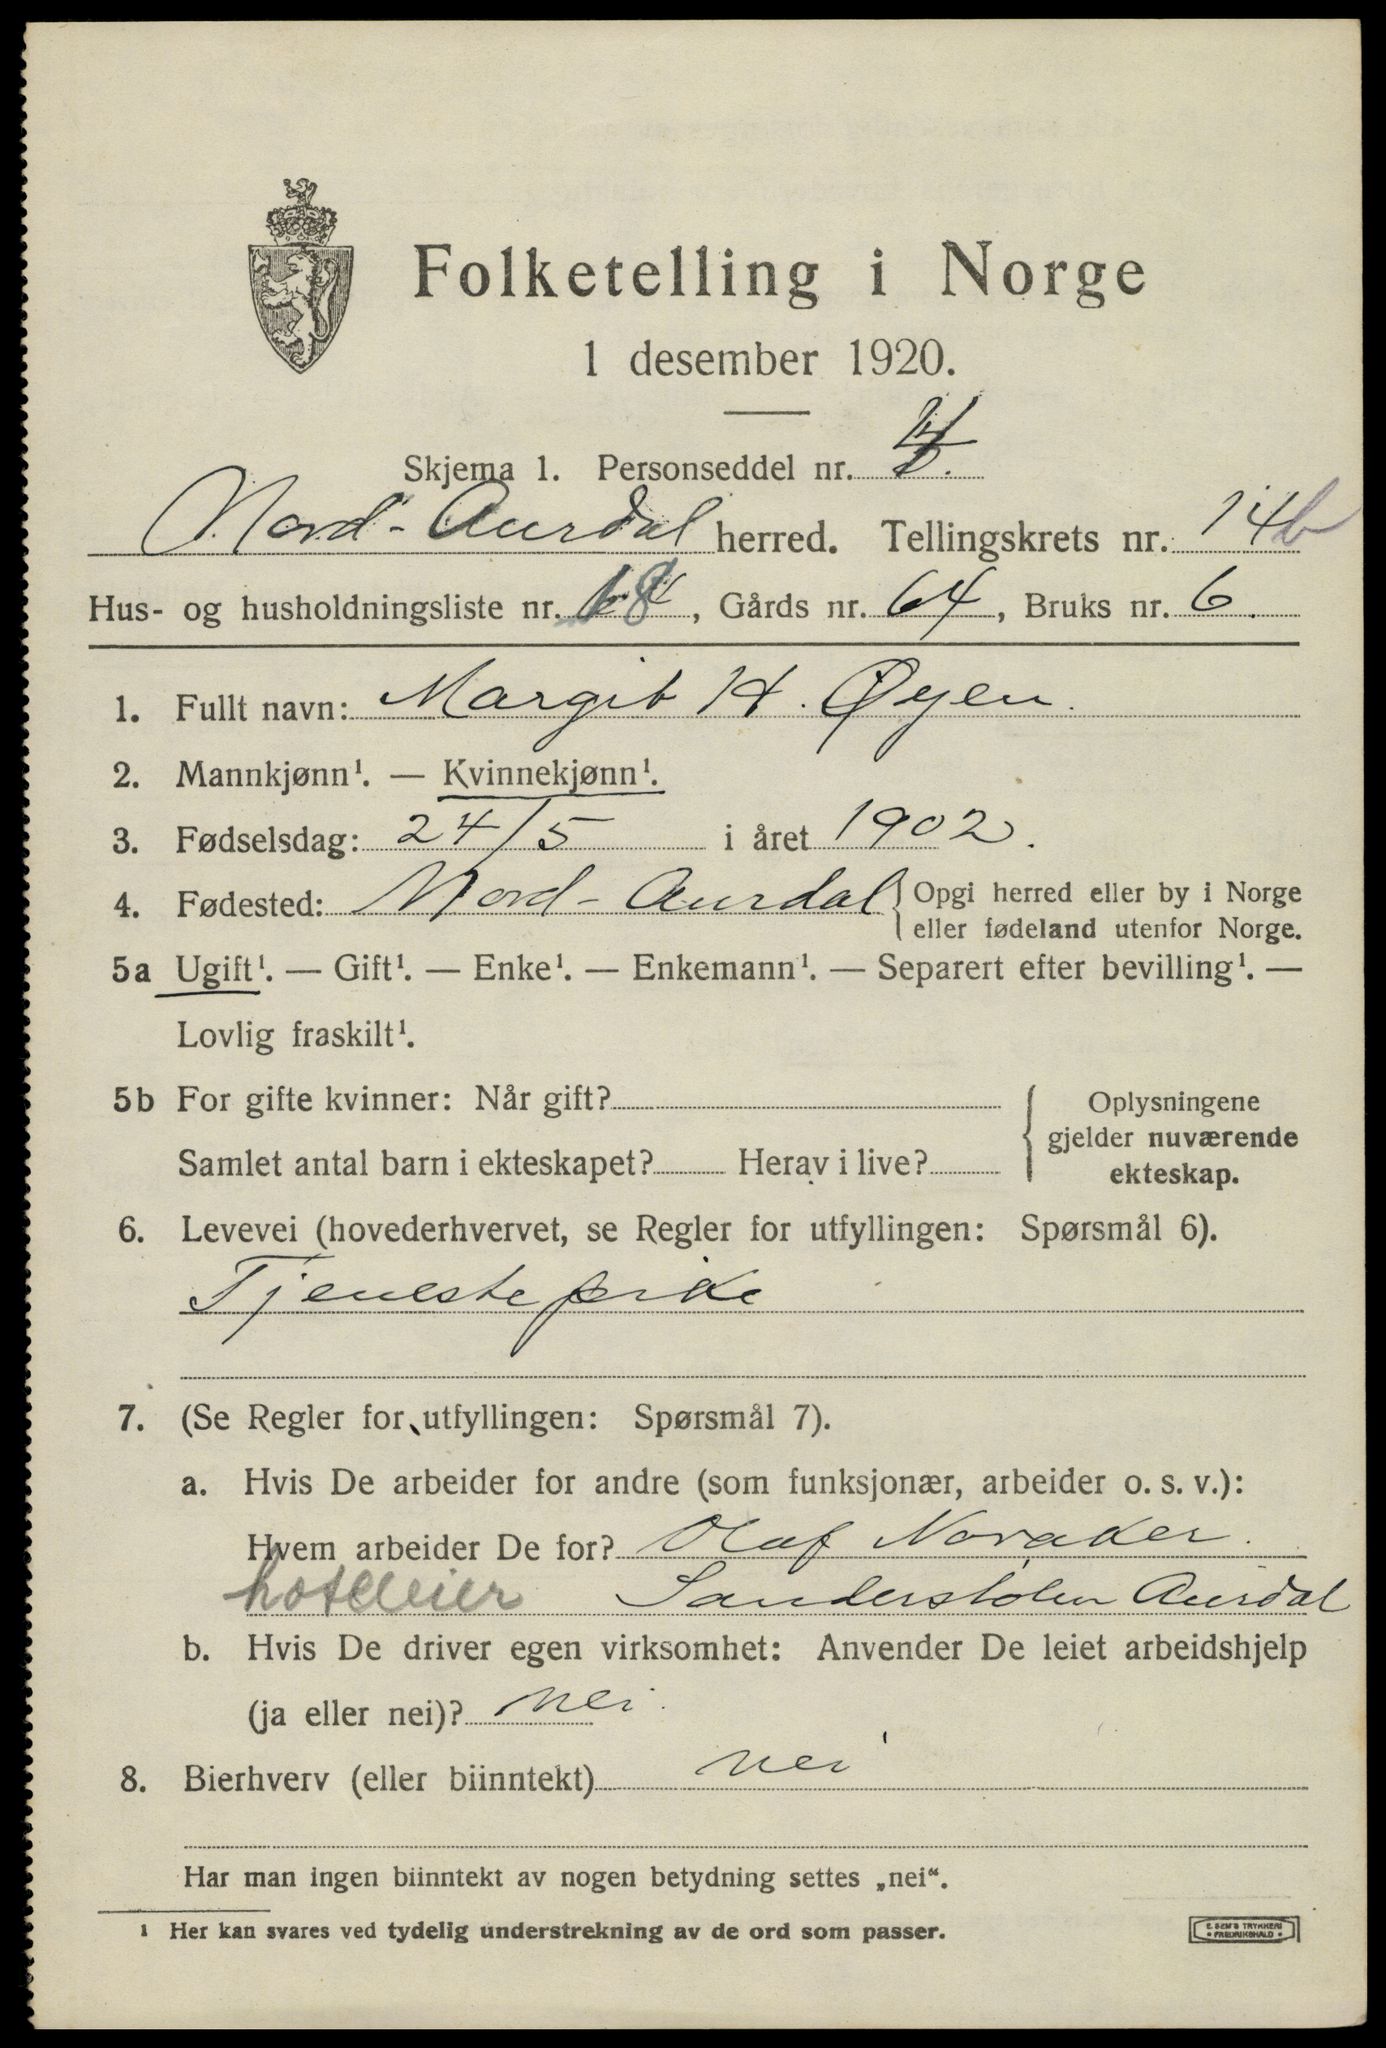 Folketelling i Norge
1 desember 1920.
Skjema 1. Personseddel nr.
Nord-Aurdal herred. Tellingskrets nr. 14b
Hus- og husholdningsliste nr. 18, Gårds nr. 64, Bruks nr. 6.
1. Fullt navn: Margit H. Øyen.
2. Mannkjønn¹. — Kvinnekjønn¹.
3. Fødselsdag: 24/5 i året 1902.
4. Fødested: Nord-Aurdal { Opgi herred eller by i Norge
eller fødeland utenfor Norge.
5a Ugift¹. — Gift¹. — Enke¹. — Enkemann¹. — Separert efter bevilling¹. —
Lovlig fraskilt¹.
5b For gifte kvinner: Når gift?
Samlet antal barn i ekteskapet? Herav i live?
{ Oplysningene
gjelder nuværende
ekteskap.
6. Levevei (hovederhvervet, se Regler for utfyllingen: Spørsmål 6).
Tjenestepike
7. (Se Regler for utfyllingen: Spørsmål 7).
a. Hvis De arbeider for andre (som funksjonær, arbeider o. s. v.):
Hvem arbeider De for? Olaf Noraker.
hoteleier Sanderstølen Aurdal
b. Hvis De driver egen virksomhet: Anvender De leiet arbeidshjelp
(ja eller nei)? nei.
8. Bierhverv (eller biinntekt) nei
Har man ingen biinntekt av nogen betydning settes „nei“.
¹ Her kan svares ved tydelig understrekning av de ord som passer.
E. SEM'S TRYKKERI
• FREDRIKSHALD •